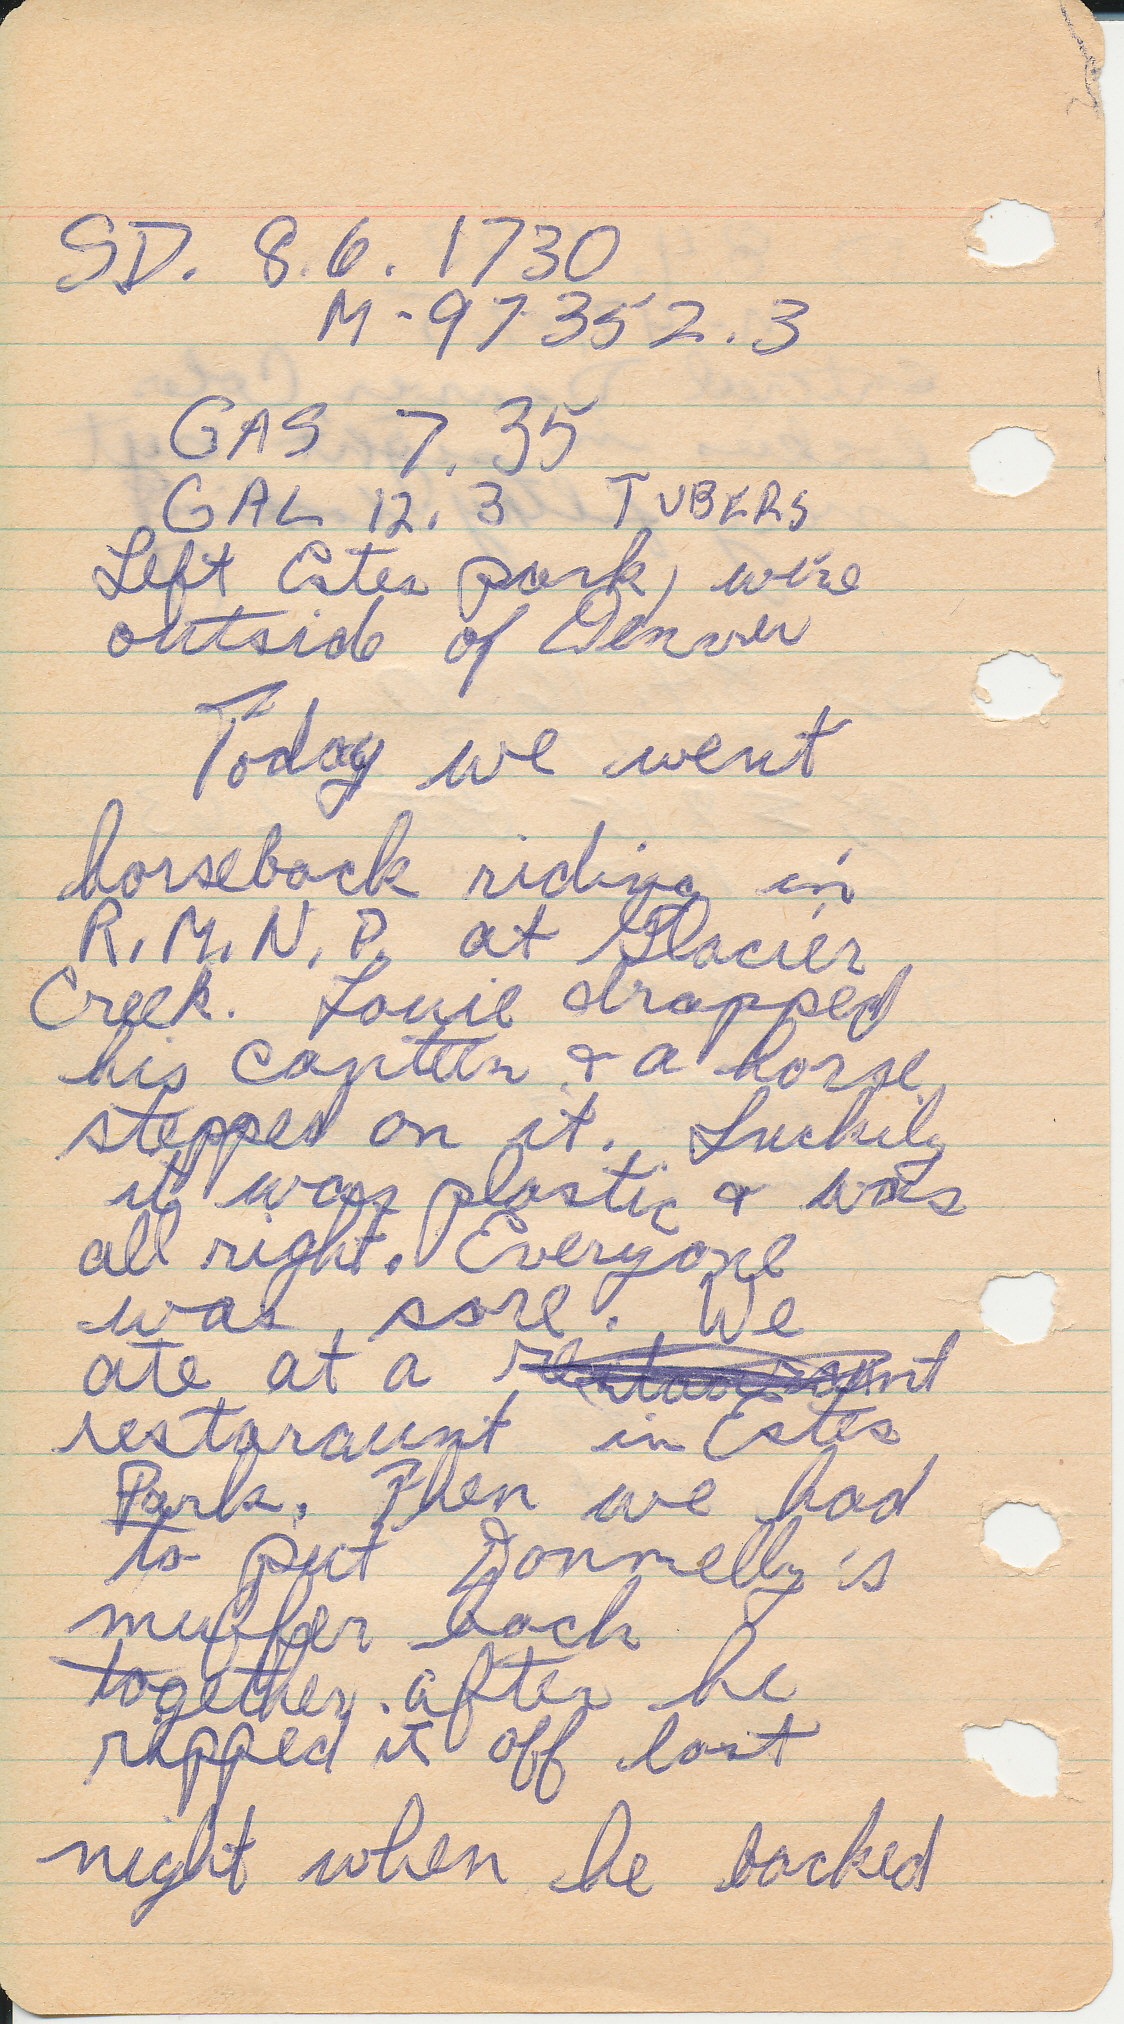 SD. 8.6. 1730
M-97352.3
GAS 7.35
GAL 12.3 TUBERS
Left Estes park, we're
outside of Denver
Today we went
horseback riding in
R.M.N.P. at Glacier
Creek. Louie dropped
his canteen & a horse
stepped on it. Luckily
it was plastic & was
all right. Everyone
was sore. We
ate at a
restoraunt in Estes
Park. Then we had
to put Donnelly's
muffer back
together after he
ripped it off last
night when he backed